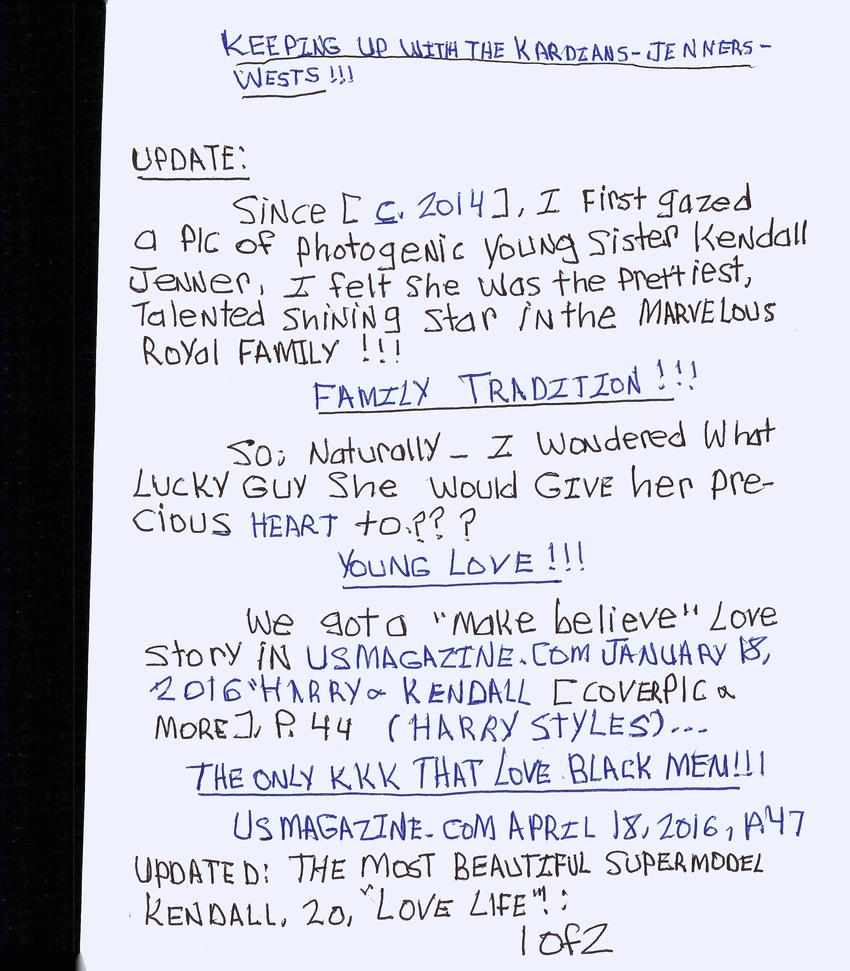 KEEPING UP WITH THE KARDIANS-JENNERS-
WESTS!!!
UPDATE:
SINCE [C. 2014], I First gazed
a PIC of photogenic young sister Kendall
Jenner, I felt she was the prettiest,
Talented shining star in the MARVELOUS
Royal FAMILY!!!
FAMILY TRADITION!!!
So; Naturally - I Wondered What
LUCKY GUY She would GIVE her pre-
cious HEART to.???
YOUNG LOVE!!!
We got a "make believe" Love
Story IN USMAGAZINE.COM JANUARY 18,
2016 "HARRY & KENDALL [COVERPIC &
MORE], P. 44 (HARRY STYLES)...
THE ONLY KKK THAT LOVE BLACK MEN!!!
USMAGAZINE.COM APRIL 18, 2016, P.47
UPDATED: THE MOST BEAUTIFUL SUPERMODEL
KENDALL, 20, "LOVE LIFE"!:
1 of 2